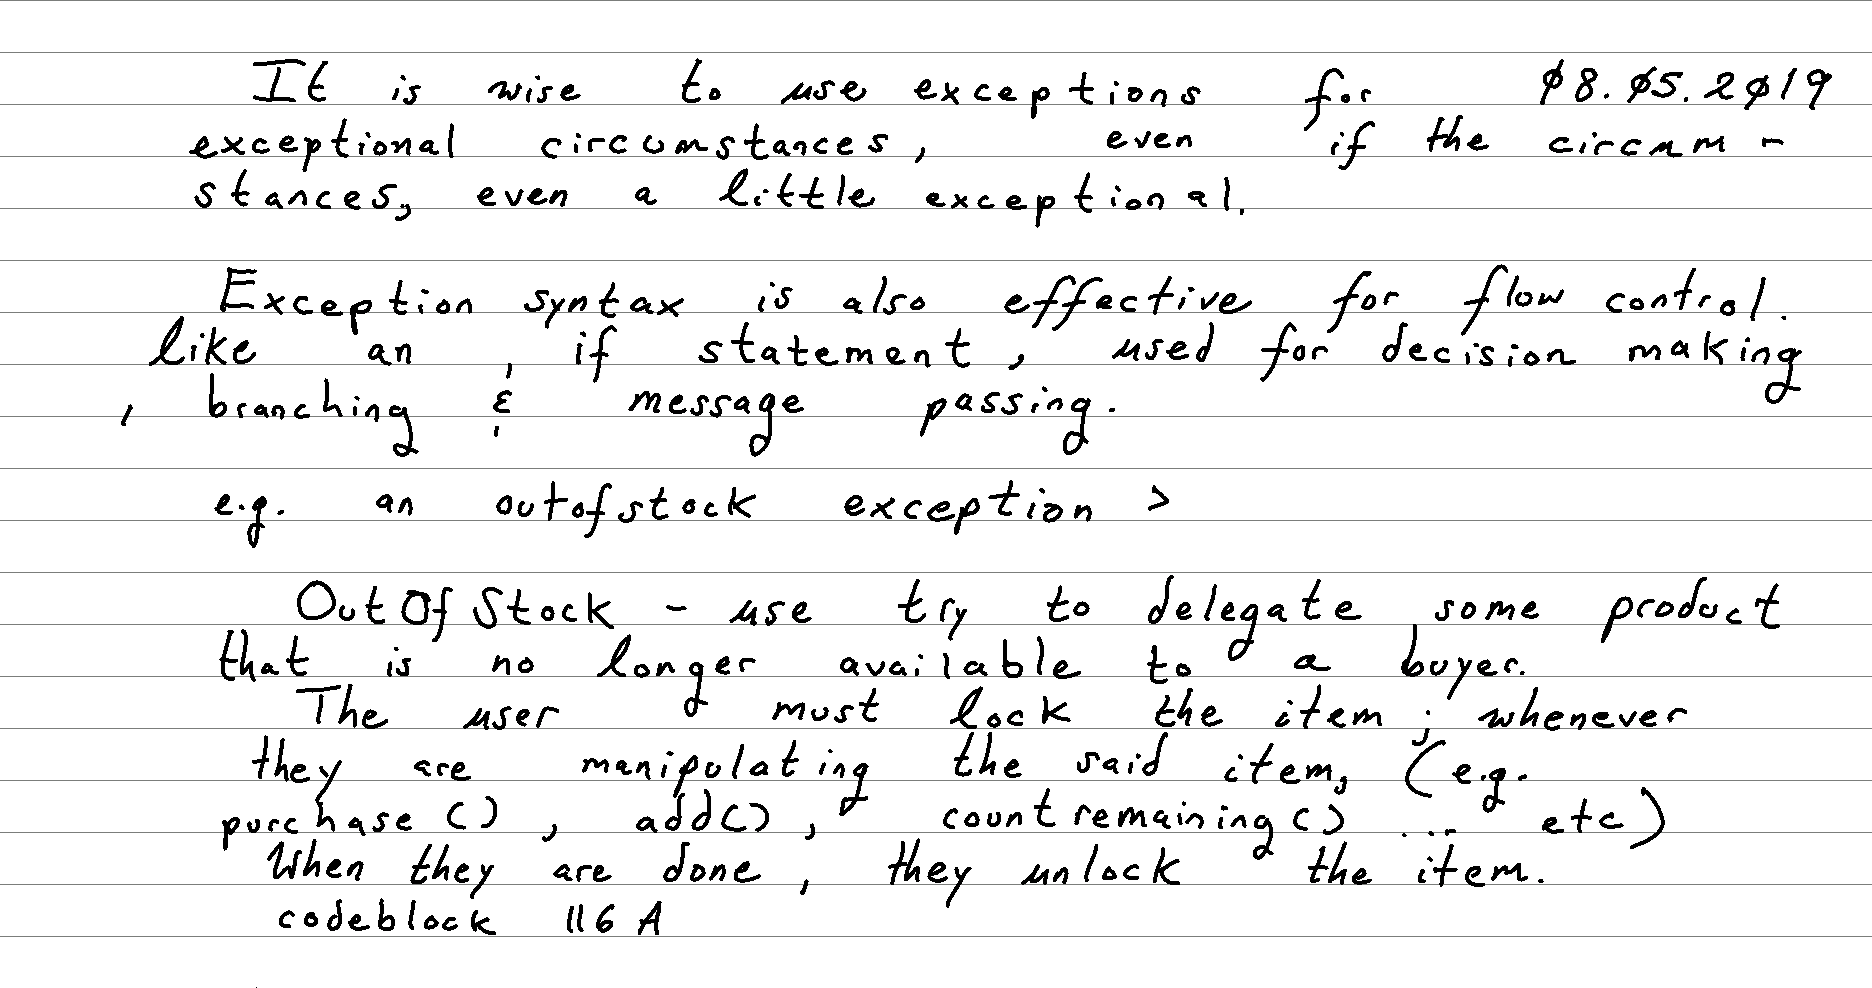 It is wise to use exceptions for 08.05.2019
exceptional circumstances, even if the circum-
stances, even a little exceptional.
Exception syntax is also effective for flow control.
like an , if statement, used for decision making
, branching & message passing.
e.g. an outofstock exception >
OutOfStock - use try to delegate some product
that is no longer available to a buyer.
The user must lock the item; whenever
they are manipulating the said item, (e.g.
purchase(), add(), countremaining() ... etc)
When they are done, they unlock the item.
codeblock 116 A